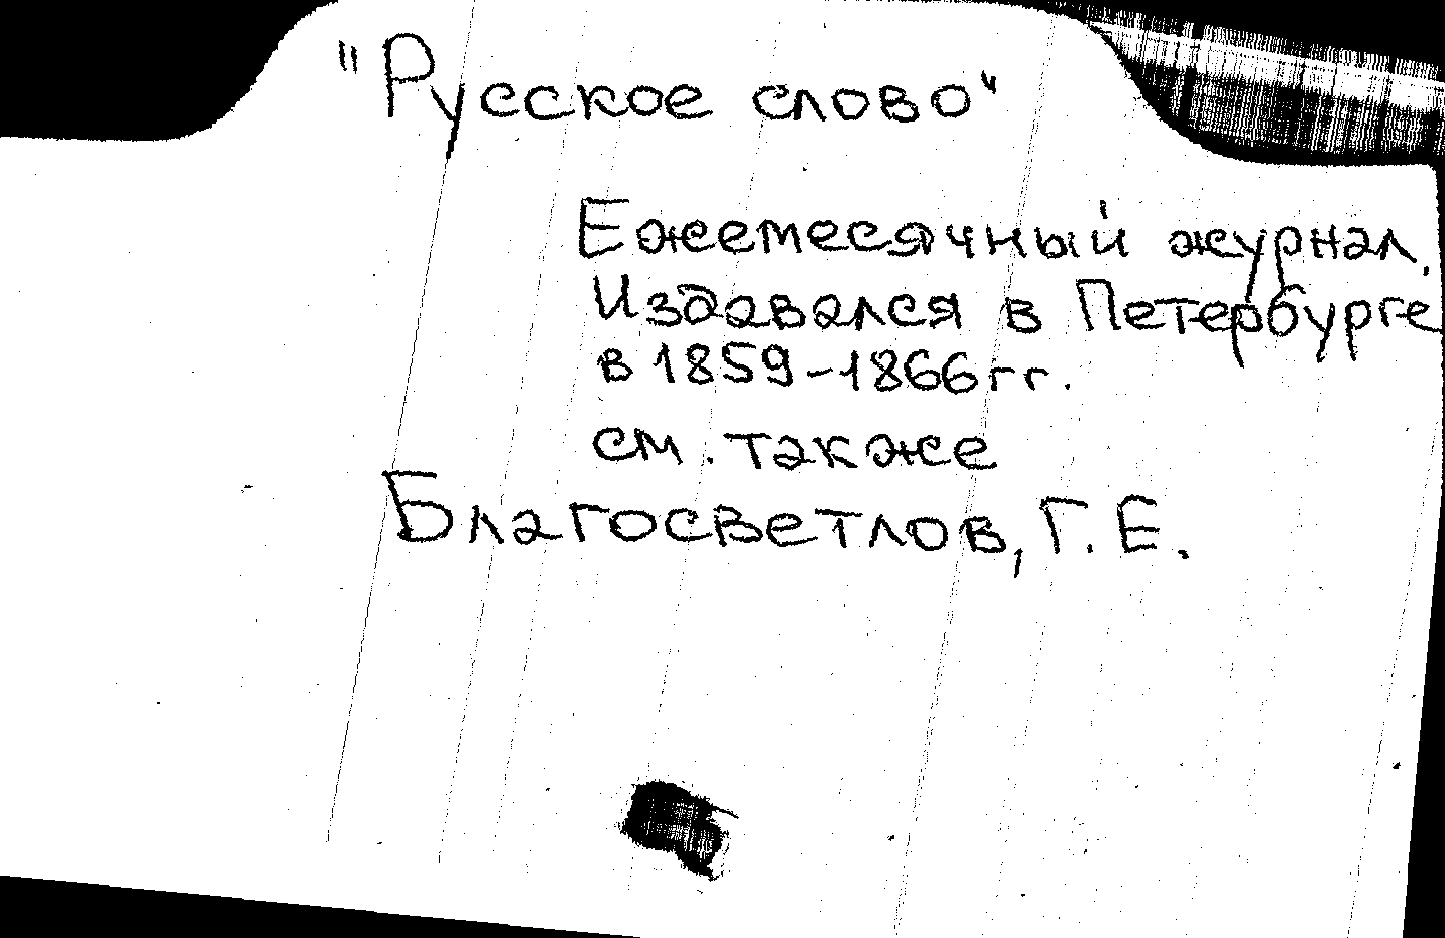 "Русское слово"
Ежемесячный журнал.
Издавался в Петербурге
в 1859-1866гг.
см. также
Благосветлов, Г. Е.